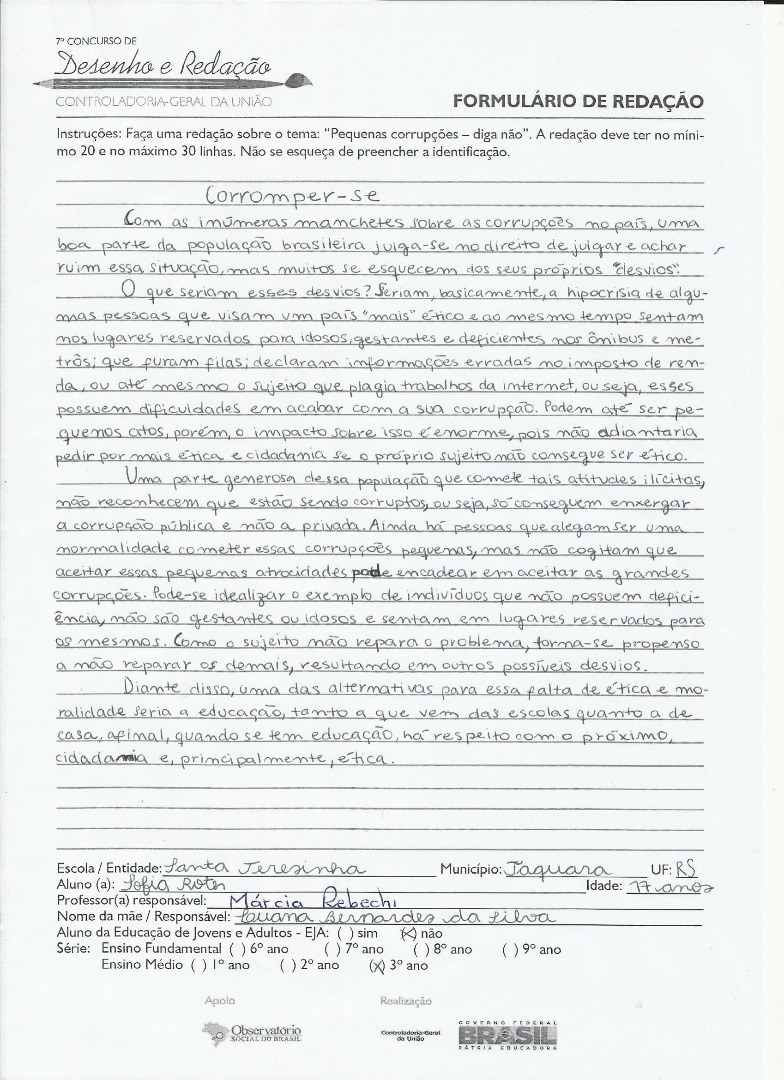 7º CONCURSO DE
Desenho e Redação
CONTROLADORIA-GERAL DA UNIÃO
FORMULÁRIO DE REDAÇÃO
Instruções: Faça uma redação sobre o tema: “Pequenas corrupções – diga não”. A redação deve ter no míni-
mo 20 e no máximo 30 linhas. Não se esqueça de preencher a identificação.
Corromper-se
Com as inúmeras manchetes sobre as corrupções no país, uma
boa parte da população brasileira julga-se no direito de julgar e achar
ruim essa situação, mas muitos se esquecem dos seus próprios "desvios".
O que seriam esses desvios? Seriam, basicamente, a hipocrisia de algu-
mas pessoas que visam um país "mais" ético e ao mesmo tempo sentam
nos lugares reservados para idosos, gestantes e deficientes nos ônibus e me-
trôs; que furam filas; declaram informações erradas no imposto de ren-
da, ou até mesmo o sujeito que plagia trabalhos da internet, ou seja, esses
possuem dificuldades em acabar com a sua corrupção. Podem até ser pe-
quenos atos, porém, o impacto sobre isso é enorme, pois não adiantaria
pedir por mais ética e cidadania se o próprio sujeito não consegue ser ético.
Uma parte generosa dessa população que comete tais atitudes ilícitas,
não reconhecem que estão sendo corruptos, ou seja, só conseguem enxergar
a corrupção pública e não a privada. Ainda há pessoas que alegam ser uma
normalidade cometer essas corrupções pequenas, mas não cogitam que
aceitar essas pequenas atrocidades pode encadear em aceitar as grandes
corrupções. Pode-se idealizar o exemplo de indivíduos que não possuem defici-
ência, não são gestantes ou idosos e sentam em lugares reservados para
os mesmos. Como o sujeito não repara o problema, torna-se propenso
a não reparar os demais, resultando em outros possíveis desvios.
Diante disso, uma das alternativas para essa falta de ética e mo-
ralidade seria a educação, tanto a que vem das escolas quanto a de
casa, afinal, quando se tem educação, há respeito com o próximo,
cidadania e, principalmente, ética.
Escola / Entidade: Santa Teresinha Município: Taquara UF: RS
Aluno (a): Sofia Idade: 17 anos
Professor(a) responsável: Márcia Rebechi
Nome da mãe / Responsável: Luana Bernardes da Silva
Aluno da Educação de Jovens e Adultos - EJA: ( ) sim (x) não
Série: Ensino Fundamental ( ) 6º ano ( ) 7º ano ( ) 8º ano ( ) 9º ano
Ensino Médio ( ) 1º ano ( ) 2º ano (x) 3º ano
Apoio Realização
Observatório
SOCIAL DO BRASIL
Controladoria-Geral
da União
GOVERNO FEDERAL
BRASIL
PÁTRIA EDUCADORA